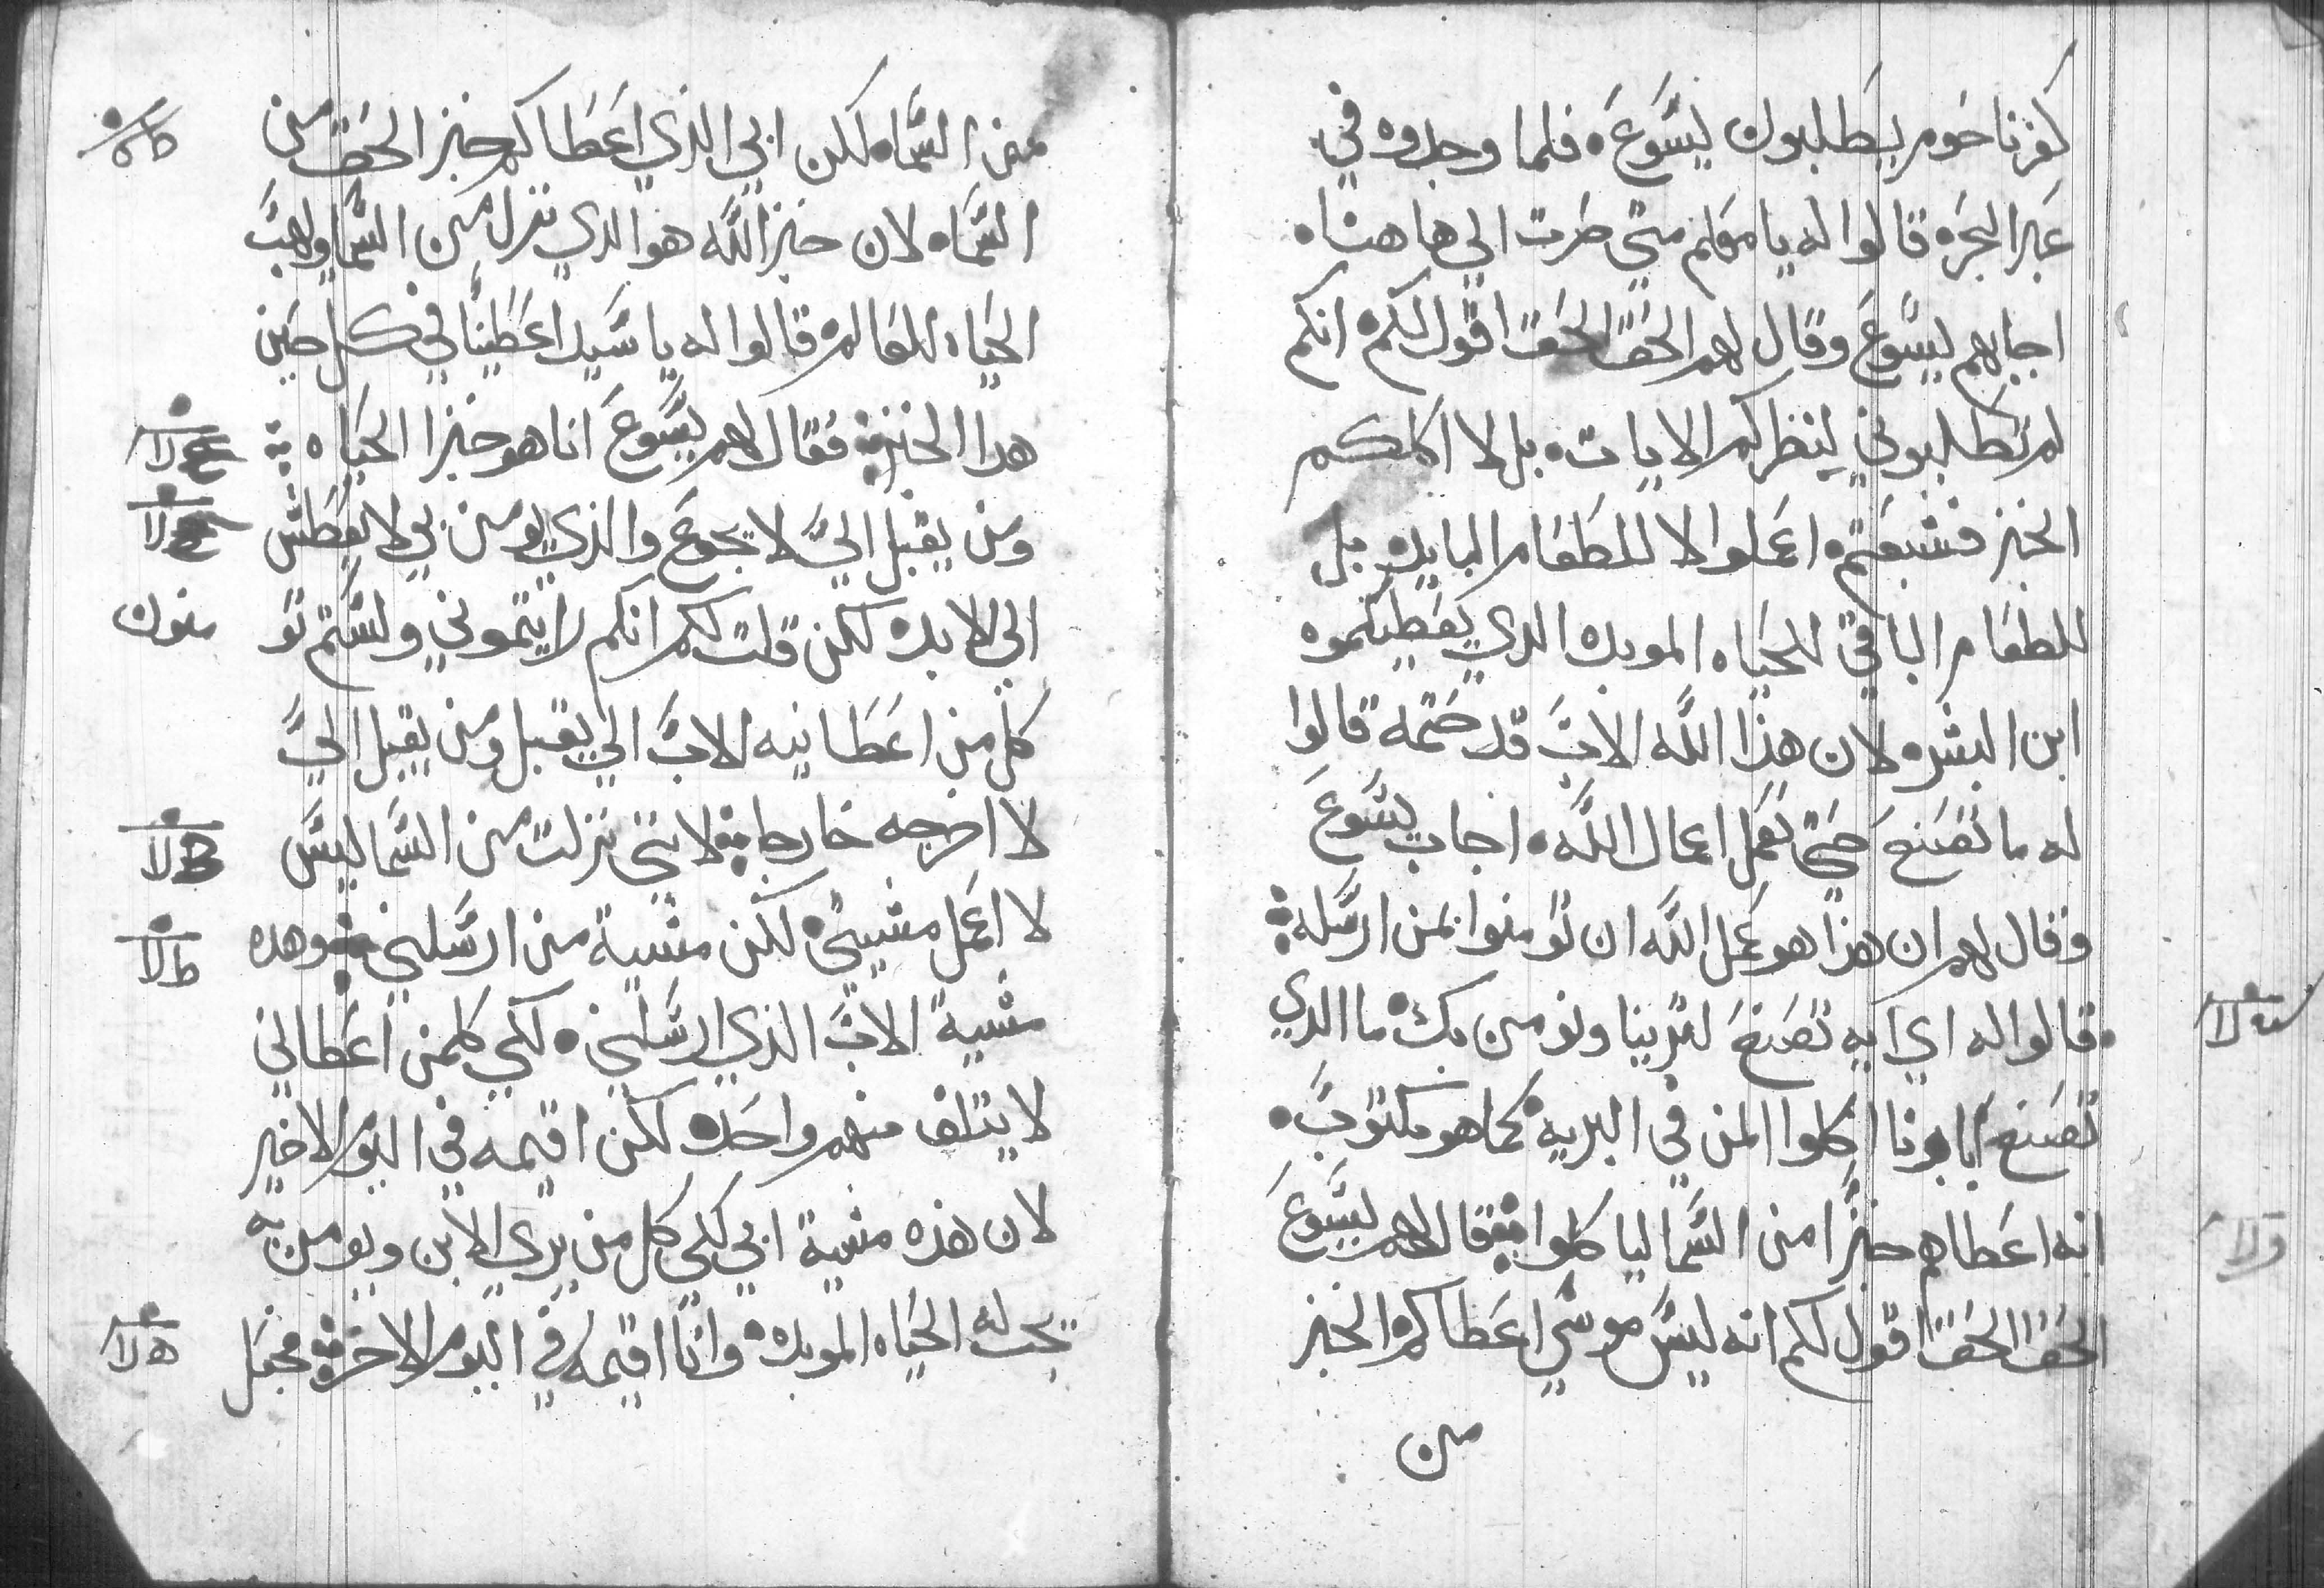 كفرناحوم يطلبون يسوع فلما وجدوه في
عبر البحر قالوا له يا معلم متى صرت الي هاهنا
اجابهم يسوع وقال لهم الحق الحق اقول لكم انكم
لم تطلبوني لنظركم الايات بل لا اكلكم
الخبز فشبعتم اعملوا لا للطعام البايد بل
للطعام الباقي للحياه الموبده الدي يعطيكموه
ابن البشر لان هذا الله الاب قد ختمه قالوا
له ما نصنع حتي نعمل اعمال الله اجاب يسوع
وقال لهم ان هذا هو عمل الله ان تومنوا بمن ارسله
قالوا له اي ايه تصنع لنرينا ونومن بك ما الدي
تصنع ابابونا اكلوا المن في البريه كما هو مكتوب
انه اعطاهم خبزا من السما لياكلوا فقال لهم يسوع
الحق الحق اقول لكم انه ليس موسي اعطاكم الخبز
من
من السماء لكن ابي الذي اعطاكم خبز الحق من
السماء لان خبز الله هو الدي نزل من السما وهب
الحياه للعالم قالوا له يا سيد اعطينا في كل حين
هدا الخبز فقال لهم يسوع انا هو خبز الحياه
ومن يقبل الي لا يجوع والذي يومن بي لا يعطش
الي الابد لكن قلت لكم انكم رايتموني ولستم تو
منون
كل من اعطانيه الاب الي يقبل ومن يقبل الي
لا اخرجه خارجا لانني نزلت من السما ليس
لا اعمل مشيتي لكن مشية من ارسلني وهده
مشية الاب الذي ارسلني لكي كلمن اعطاني
لا يتلف منهم واحد لكن اقيمه في اليوم الاخير
لان هذه مشية ابي لكي كل من يري الابن ويومن به
تجب له الحياه الموبده وانا اقيمه في اليوم الاخر فجعل